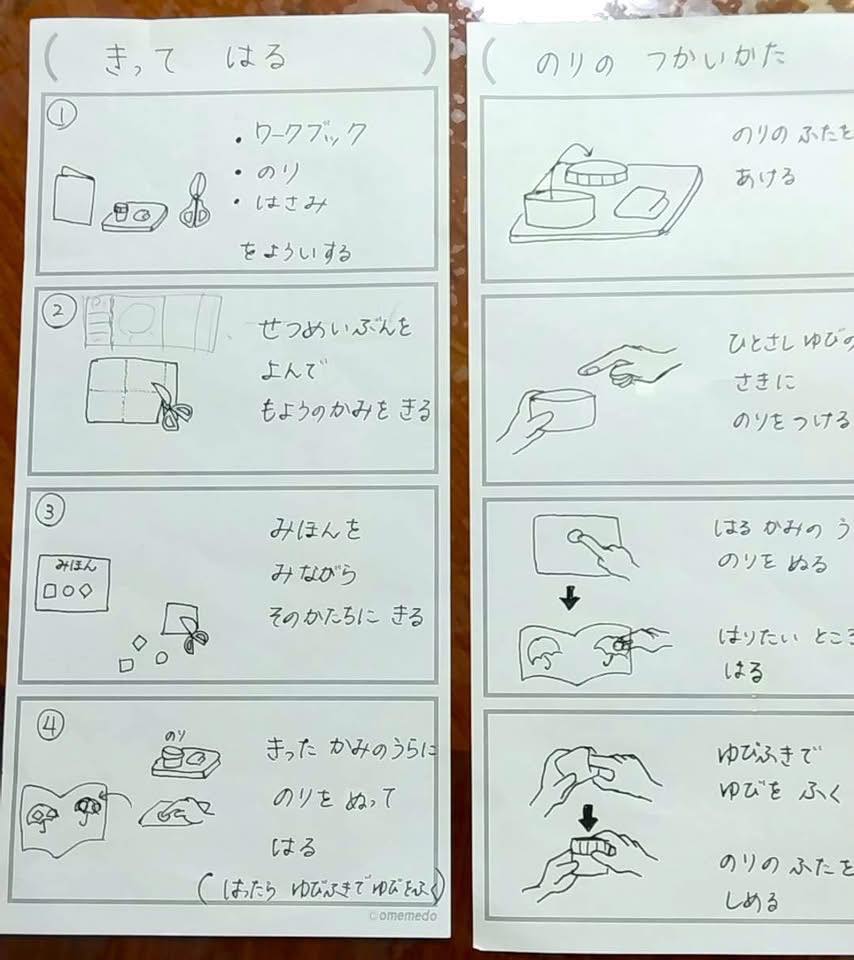 ( きって はる )
①
・ワークブック
・のり
・はさみ
をよういする
②
せつめいぶんを
よんで
もようのかみを きる
③
みほん
みほんを
みながら
そのかたちに きる
④
のり
きった かみのうらに
のりを ぬって
はる
(はったら ゆびふきでゆびをふく)
©omemedo
( のりの つかいかた
のりの ふたを
あける
ひとさし ゆびの
さきに
のりをつける
はる かみの う
のりを ぬる
はりたい ところ
はる
ゆびふきで
ゆびを ふく
のりの ふたを
しめる